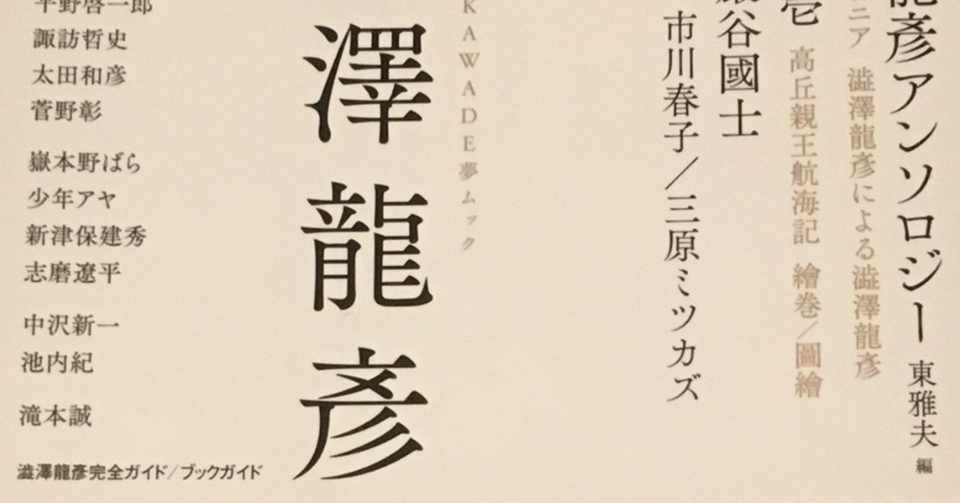 龍彥アンソロジー 東雅夫 編
ニア 澁澤龍彥による澁澤龍彥
高丘親王航海記 繪巻/圖繪
巖谷國士
市川春子/三原ミツカズ
KAWADE夢ムック
澤龍彥
平野啓一郎
諏訪哲史
太田和彦
菅野彰
嶽本野ばら
少年アヤ
新津保建秀
志磨遼平
中沢新一
池内紀
滝本誠
澁澤龍彥完全ガイド/ブックガイド